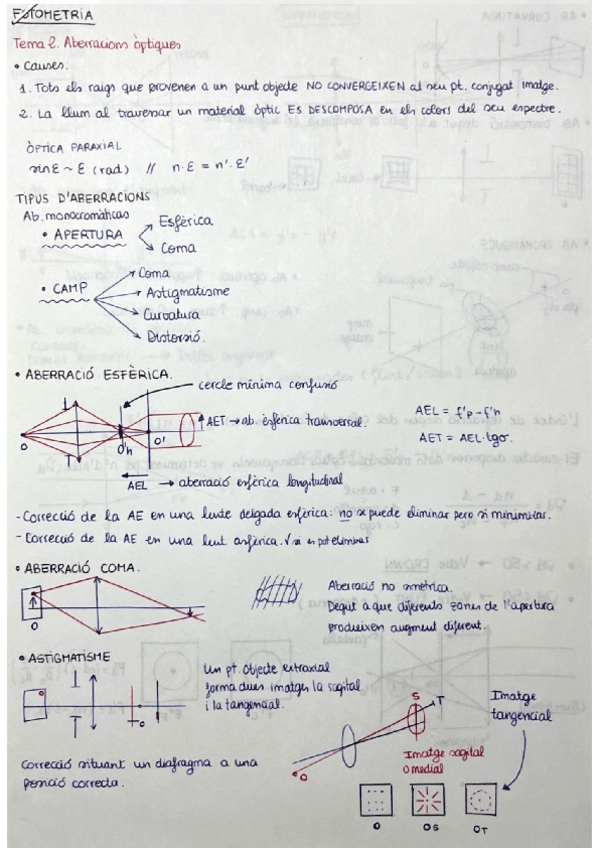 FOTOMETRIA
Tema 2. Aberracions òptiques
• Causes.
1. Tots els raigs que provenen a un punt objecte NO CONVERGEIXEN al seu pt. conjugat imatge.
2. La llum al travessar un material òptic ES DESCOMPOSA en els colors del seu espectre.
ÒPTICA PARAXIAL
sin ε ~ ε (rad) // n·ε = n'·ε'
TIPUS D'ABERRACIONS
Ab. monocromàticas
• APERTURA
Esfèrica
Coma
• CAMP
Coma
Astigmatisme
Curvatura
Distorsió.
• ABERRACIÓ ESFÈRICA.
cercle mínima confusió
AET → ab. èsferica transversal.
AEL = f'p - f'n
AET = AEL·tgσ'
O
O'n
O'
AEL → aberració esfèrica longitudinal
- Correcció de la AE en una lente delgada esfèrica: no se puede eliminar pero si minimitzar.
- Correcció de la AE en una lent asfèrica. √ si es pot eliminar
• ABERRACIÓ COMA.
O
Aberració no simètrica.
Degut a que diferents zones de l'apertura
produeixen augment diferent.
• ASTIGMATISME
Un pt. objecte extraxial
forma dues imatges la sagital
i la tangencial.
O
S
T
Imatge
tangencial
Imatge sagital
o medial
O
Correcció situant un diafragma a una
posició correcta.
O
OS
OT